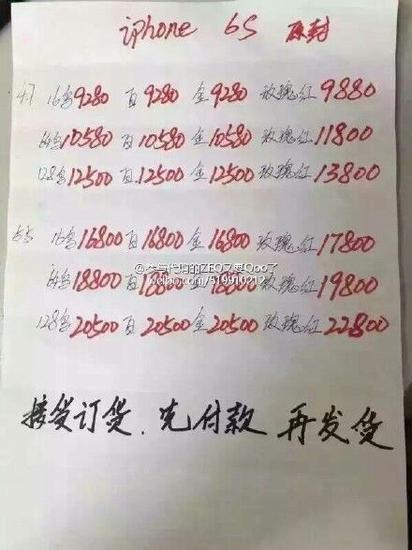 iphone 6S 原封
4.7 16G 9280 白 9280 金 9280 玫瑰红 9880
64G 10580 白 10580 金 10580 玫瑰红 11800
128G 12500 白 12500 金 12500 玫瑰红 13800
5.5 16G 16800 白 16800 金 16800 玫瑰红 17800
64G 18800 白 18800 金 18800 玫瑰红 19800
128G 20500 白 20500 金 20500 玫瑰红 22800
接受订货.先付款 再发货